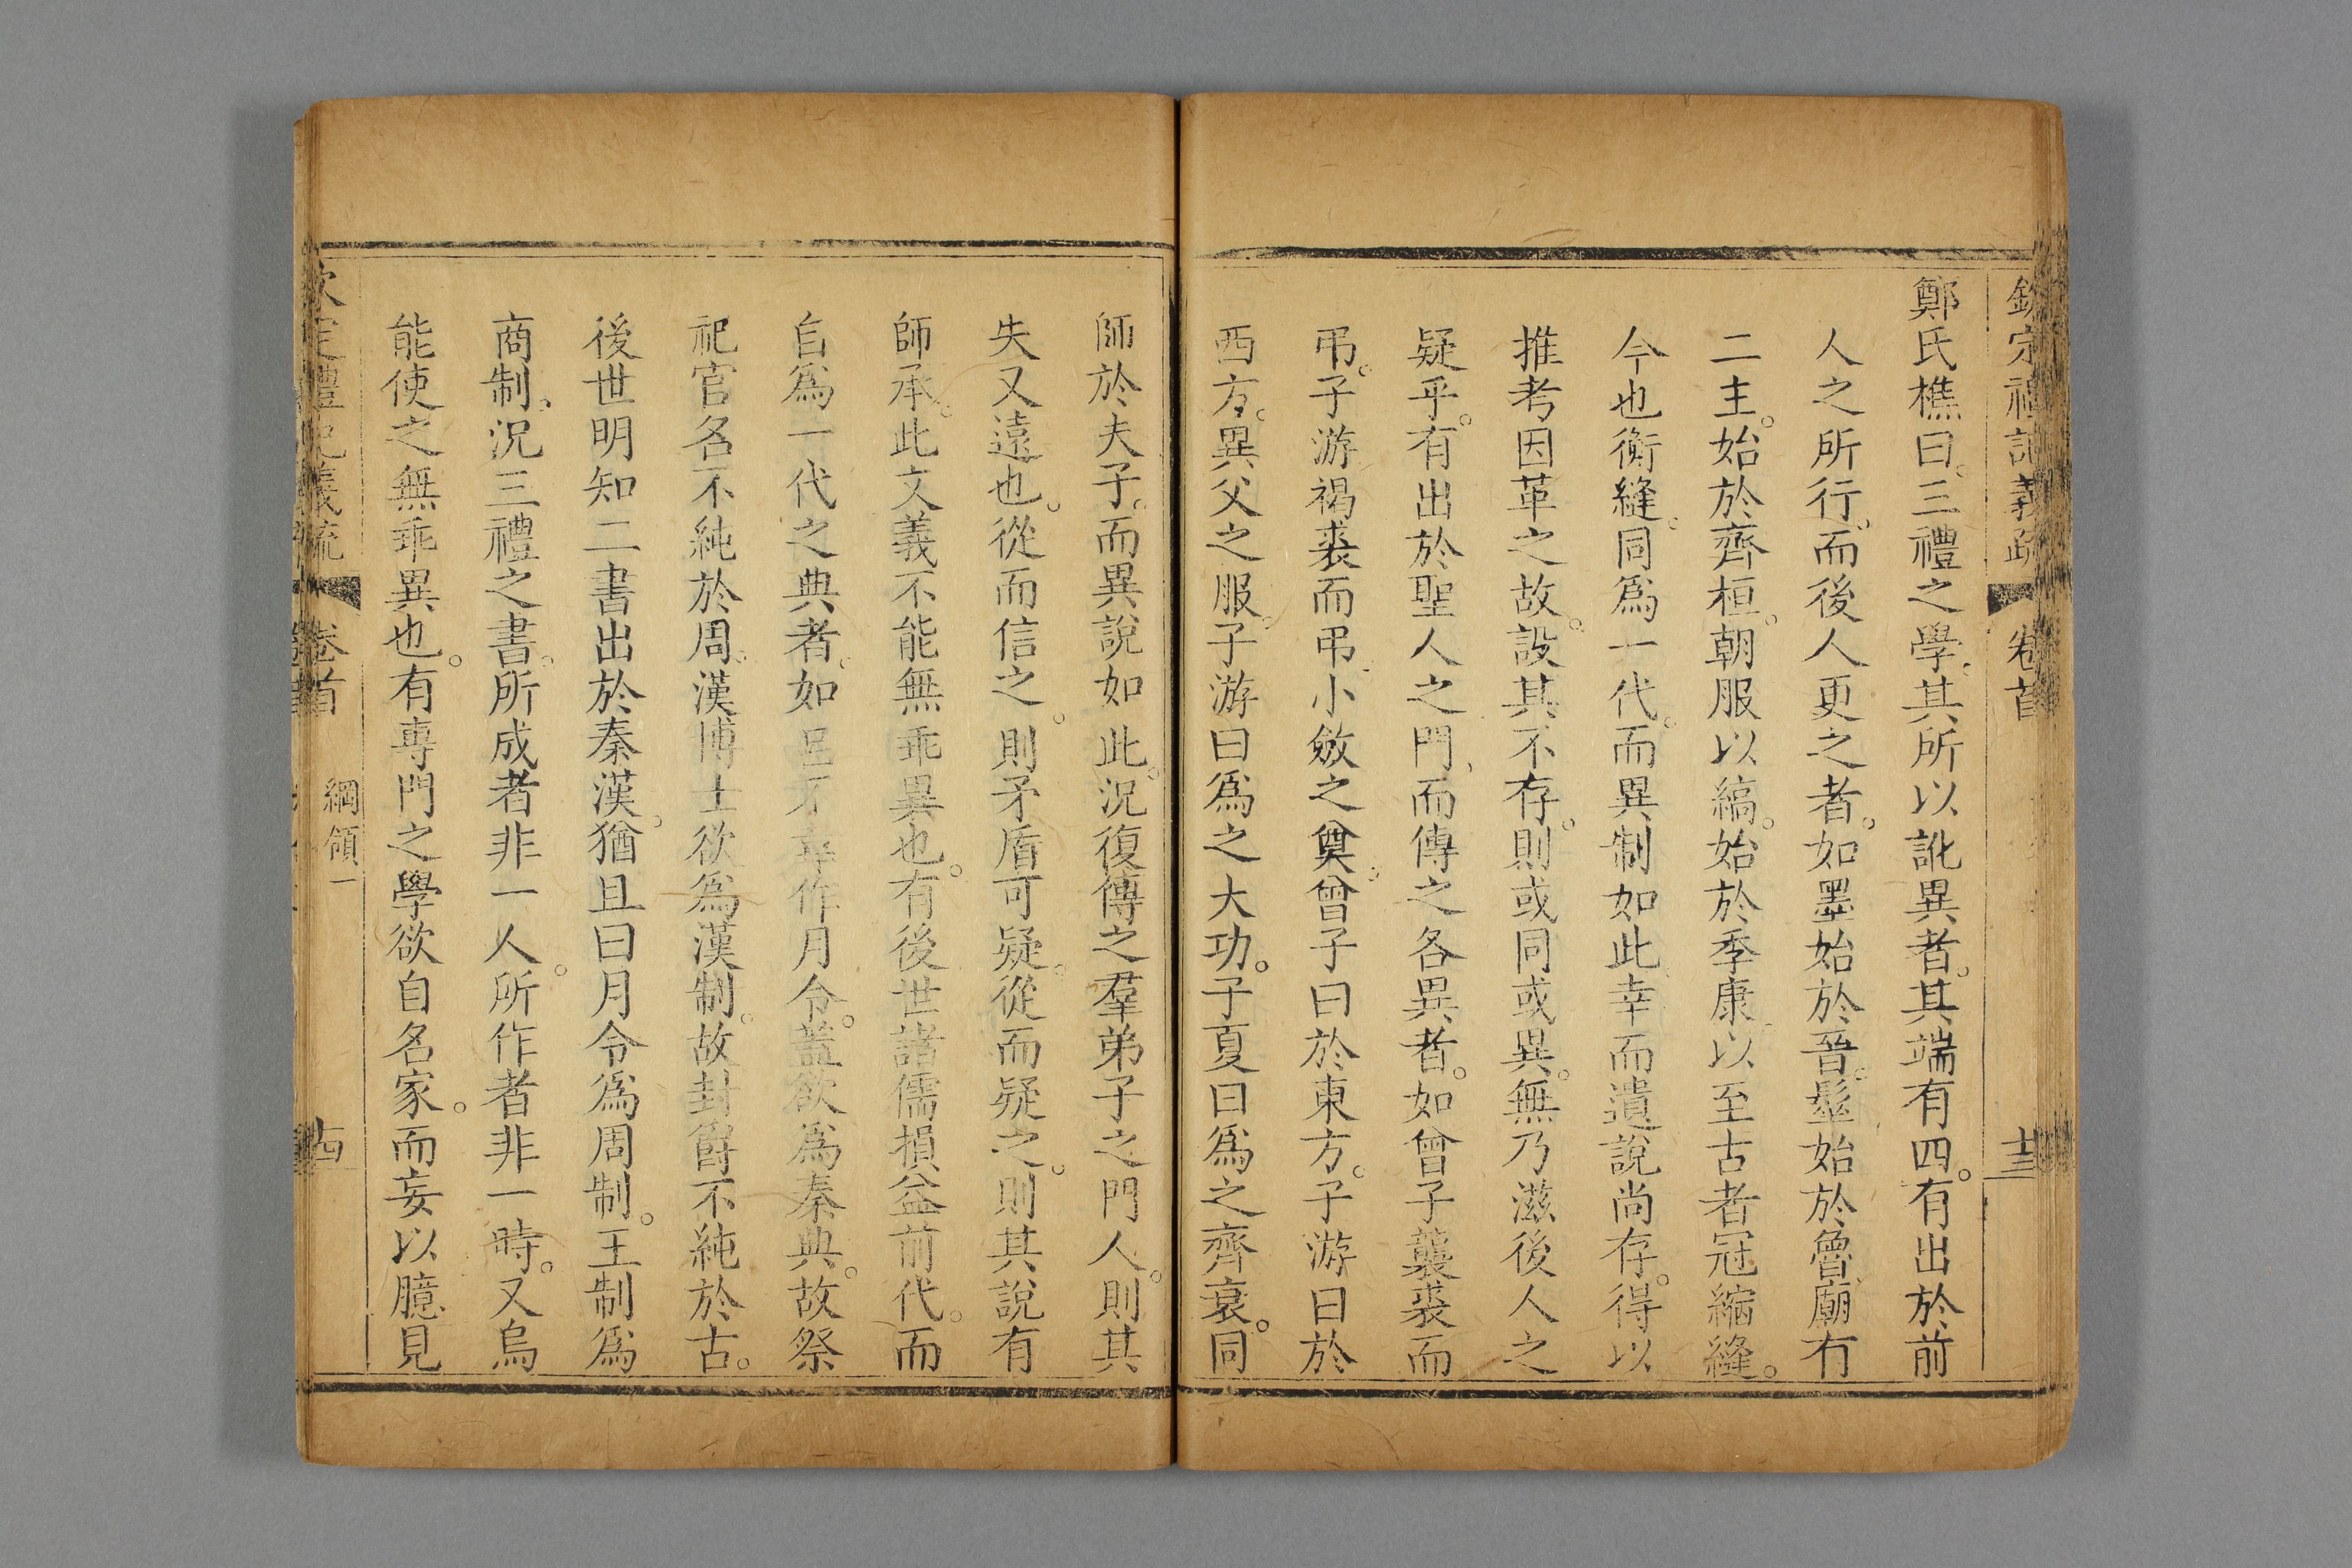 欽定禮記義疏 卷首 十三
鄭氏樵曰。三禮之學。其所以訛異者。其端有四。有出於前
人之所行。而後人更之者。如墨始於晉。髽始於魯。廟有
二主。始於齊桓。朝服以縞。始於季康。以至古者冠縮縫。
今也衡縫。同爲一代。而異制如此。幸而遺說尚存。得以
推考因革之故。設其不存。則或同或異。無乃滋後人之
疑乎。有出於聖人之門、而傳之各異者。如曾子襲裘而
弔。子游裼裘而弔。小斂之奠。曾子曰於東方。子游曰於
西方。異父之服。子游曰爲之大功。子夏曰爲之齊衰。同
師於夫子。而異說如此。況復傳之羣弟子之門人。則其
失又遠也。從而信之。則矛盾可疑。從而疑之。則其說有
師承。此文義不能無乖異也。有後世諸儒損益前代。而
自爲一代之典者。如呂不韋作月令。蓋欲爲秦典。故祭
祀官名不純於周。漢博士欲爲漢制。故封爵不純於古。
後世明知二書出於秦漢。猶且曰月令爲周制。王制爲
商制。況三禮之書。所成者非一人。所作者非一時。又烏
能使之無乖異也。有專門之學欲自名家。而妄以臆見
欽定禮記義疏 卷首 綱領一 十四